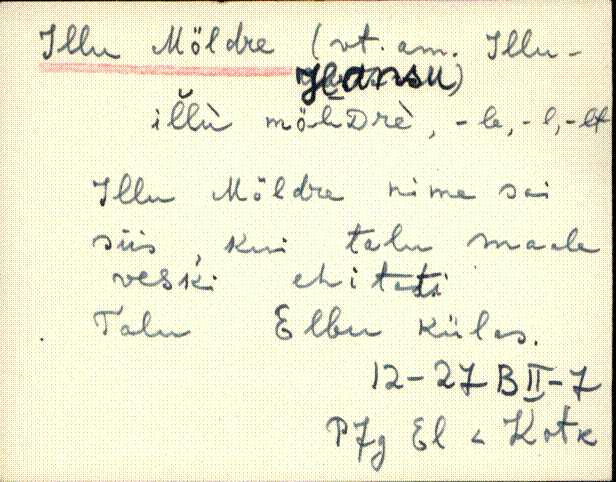 Illu Möldre (vt. am. Illu-
Hansu)
il̆lù mölDrè, -le, -l, -lt
Illu Möldre nime sai
siis, kui talu maale
veski ehitati
Talu Elbu külas.
12-27 B II-7
PJg El < Kotk